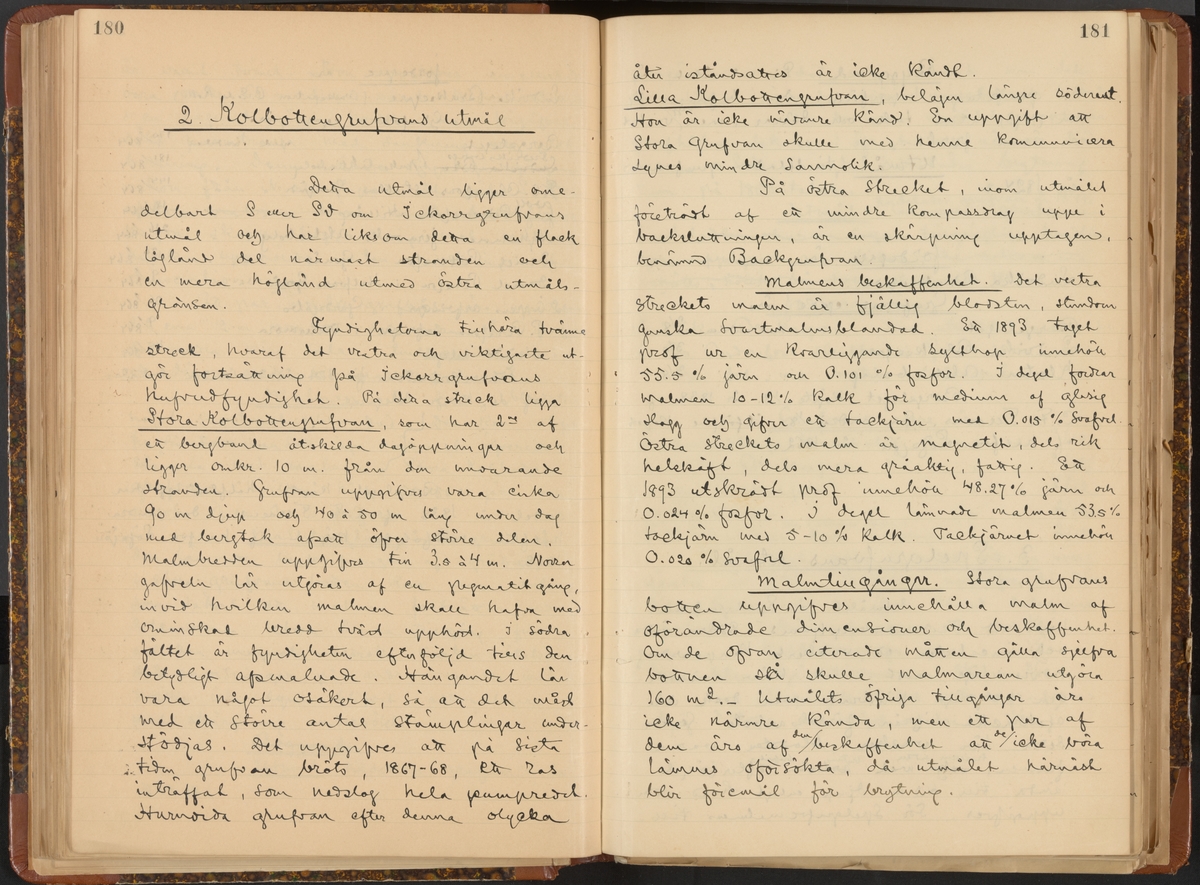 180
2. Kolbottengrufvans utmål
Detta utmål ligger ome-
delbart S eller SV om Ickorrgrufvans
utmål och har liksom detta en flack
lågländ del närmast stranden och
en mera högländ utmed östra utmåls-
gränsen.
Fyndigheterna tillhöra tvänne
streck, hvaraf det vestra och viktigaste ut-
gör fortsättning på Ickorrgrufvans
hufvudfyndighet. På detta streck ligga
Stora Kolbottengrufvan, som har 2ne af
ett bergband åtskilda dagöppningar och
ligger omkr. 10 m. från den nuvarande
stranden. Grufvan uppgifves vara cirka
90 m djup och 40 à 50 m lång under dag
med bergtak afsatt öfver större delen.
Malmbredden uppgifves till 3.5 à 4 m. Norra
gafveln lär utgöras af en pegmatitgång,
invid hvilken malmen skall hafva med
ominskad bredd tvärt upphört. I södra
fältet är fyndigheten efterföljd tills den
betydligt afsmalnade. Hängandet lär
vara något osäkert, så att det måst
med ett större antal stämplingar under-
stödjas. Det uppgifves att på sista
tiden grufvan bröts, 1867-68, ett ras
inträffat, som nedslog hela pumpredet.
Huruvida grufvan efter denna olycka
181
åter iståndsattes är icke kändt.
Lilla Kolbottengrufvan, belägen längre söderut.
Hon är icke närmre känd. En uppgift att
Stora Grufvan skulle med henne kommunicera
synes mindre sannolik.
På östra strecket, inom utmålet
företrädt af ett mindre kompassdrag uppe i
backsluttningen, är en skärpning upptagen,
benämnd Backgrufvan.
Malmens beskaffenhet. Det vestra
streckets malm är fjällig blodsten, stundom
ganska svartmalmsblandad. Ett 1893 taget
prof ur en kvarliggande sylthop innehöll
55.5 % järn och 0.101 % fosfor. I degel fordrar
malmen 10-12 % kalk för medium af glasig
slagg och gifver ett tackjärn med 0.015 % svafvel.
Östra streckets malm är magnetit, dels rik
helskäft, dels mera gråaktig, fattig. Ett
1893 utskrädt prof innehöll 48.27 % järn och
0.024 % fosfor. I degel lämnade malmen 53.5 %
tackjärn med 5-10 % kalk. Tackjärnet innehöll
0.020 % svafvel.
Malmtillgångar. Stora grufvans
botten uppgifves innehålla malm af
oförändrade dimensioner och beskaffenhet.
Om de ofvan citerade måtten gälla sjelfva
bottnen så skulle malmarean utgöra
160 m². – Utmålets öfriga tillgångar äro
icke närmre kända, men ett par af
dem äro af den beskaffenhet att de icke böra
lämnas oförsökta, då utmålet härnäst
blir föremål för brytning.